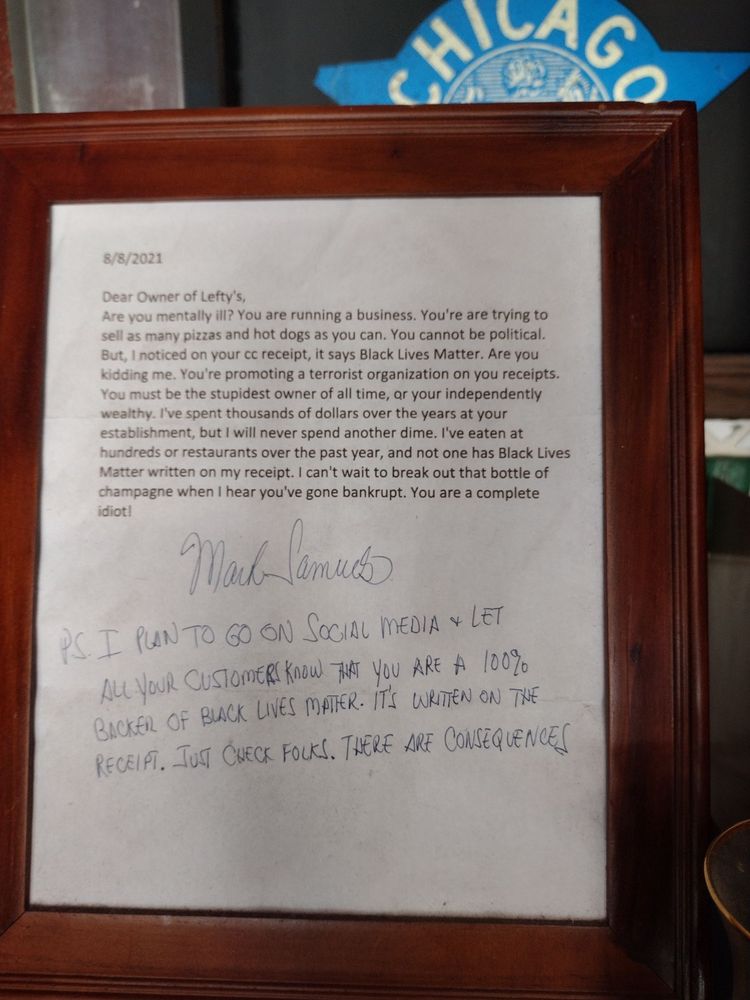 CHICAGO
8/8/2021
Dear Owner of Lefty's,
Are you mentally ill? You are running a business. You're are trying to
sell as many pizzas and hot dogs as you can. You cannot be political.
But, I noticed on your cc receipt, it says Black Lives Matter. Are you
kidding me. You're promoting a terrorist organization on you receipts.
You must be the stupidest owner of all time, or your independently
wealthy. I've spent thousands of dollars over the years at your
establishment, but I will never spend another dime. I've eaten at
hundreds or restaurants over the past year, and not one has Black Lives
Matter written on my receipt. I can't wait to break out that bottle of
champagne when I hear you've gone bankrupt. You are a complete
idiot!
Mark Samuels
P.S. I PLAN TO GO ON SOCIAL MEDIA & LET
ALL YOUR CUSTOMERS KNOW THAT YOU ARE A 100%
BACKER OF BLACK LIVES MATTER. IT'S WRITTEN ON THE
RECEIPT. JUST CHECK FOLKS. THERE ARE CONSEQUENCES